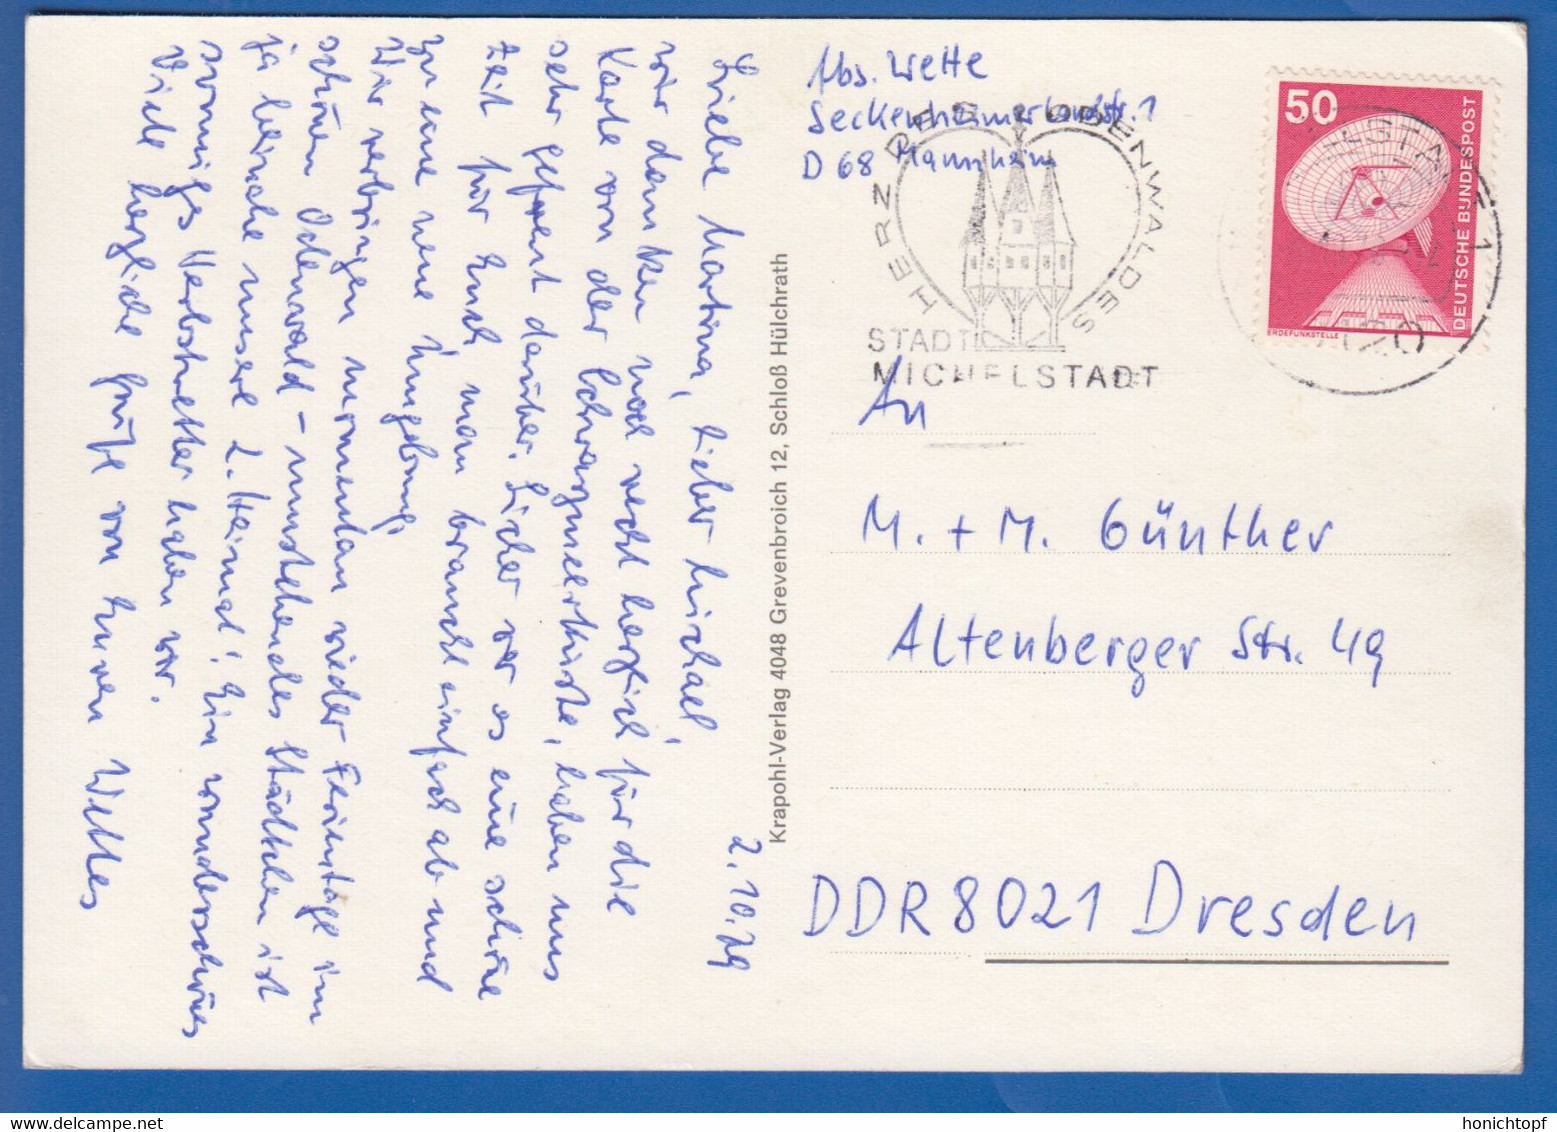 2.10.79
Liebe Martina, lieber Michael,
wir danken noch recht herzlich für die
Karte von der Schwarzmeerküste, haben uns
sehr gefreut darüber. Sicher war es eine schöne
Zeit für Euch, man braucht einfach ab und
zu eine neue Umgebung.
Wir verbringen momentan wieder Ferientage im
schönen Odenwald – umstehendes Städtchen ist
ja beinahe unsere 2. Heimat! Ein wunderschönes
sonniges Herbstwetter haben wir.
Viele herzliche Grüße von Euren Wettes
Krapohl-Verlag 4048 Grevenbroich 12, Schloß Hülchrath
Abs. Wette
Seckenheimer Landstr. 1
D 68 Mannheim
HERZ DES ODENWALDES
STADT
MICHELSTADT
50
DEUTSCHE BUNDESPOST
ERDEFUNKSTELLE
An
M. + M. Günther
Altenberger Str. 49
DDR 8021 Dresden
honichtopf